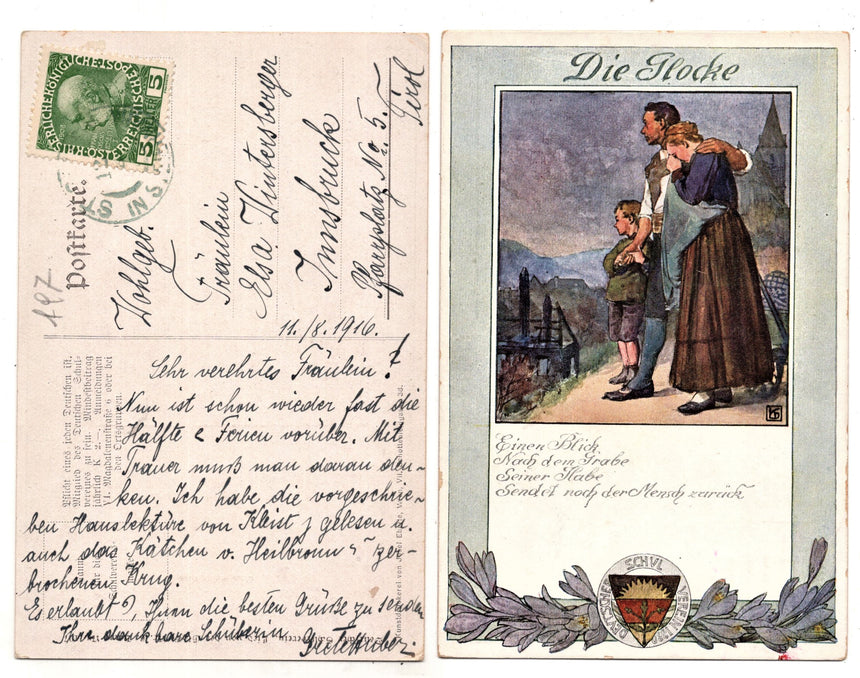 KAISERLICHE KÖNIGLICHE
ÖSTERREICHISCHE POST
5 HELLER 5
Postkarte.
197
Wohlgeb.
Fräulein
Elsa Wintersberger
Innsbruck
Pfarrplatz No. 5.
Tirol
11./8. 1916.
Sehr verehrtes Fräulein!
Nun ist schon wieder fast die
Hälfte Ferien vorüber. Mit
Trauer muß man daran den-
ken. Ich habe die vorgeschrie-
ben Hauslektüre von Kleist gelesen u.
auch das Kätchen v. Heilbronn zer-
brochenen Krug.
Es erlaubt, Ihnen die besten Grüße zu senden
Ihre dankbare Schülerin
Pflicht eines jeden Deutschen ist,
Mitglied des Deutschen Schul-
vereines zu sein. Mindestbeitrag
jährlich K 2.–. Anmeldungen
VI. Magdalenenstraße 6 oder bei
den Ortsgruppen.
Die Glocke
Einen Blick
Nach dem Grabe
Seiner Habe
Sendet noch der Mensch zurück
DEUTSCHER SCHVL VEREIN 1880